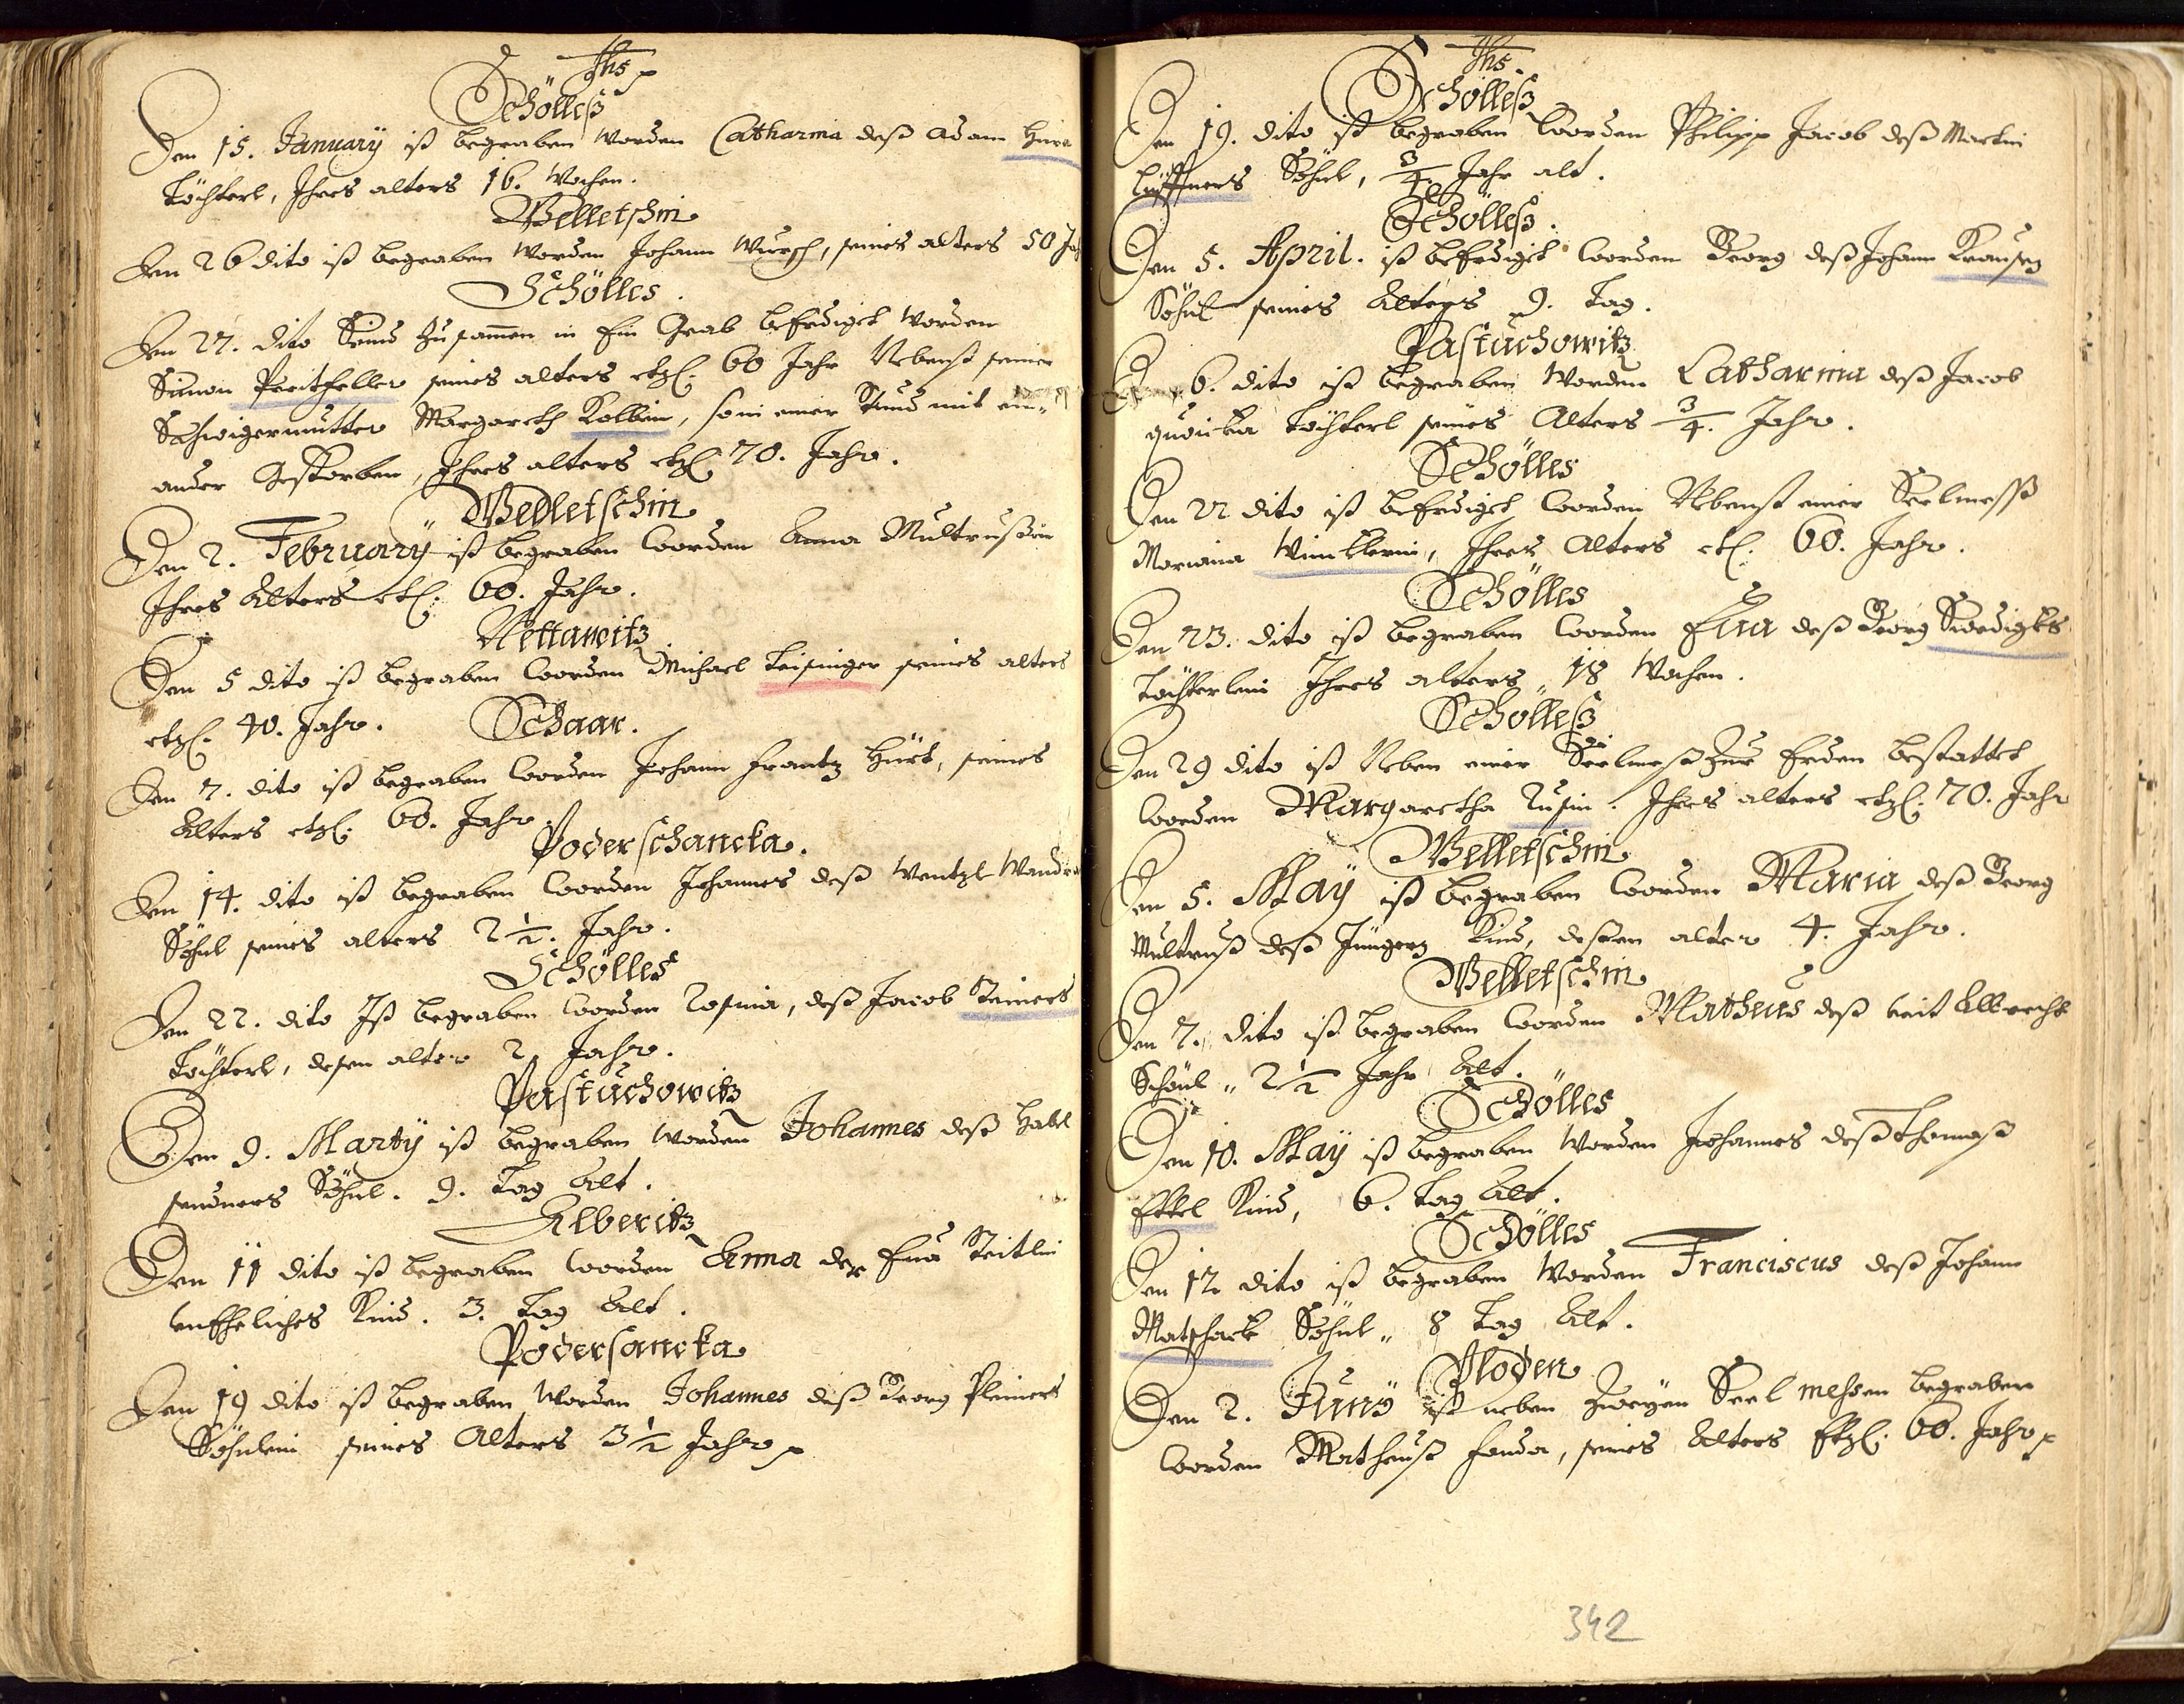 Jhs
Schölleß
Den 15. January ist begraben worden Catharina deß Adam
Töchterl, Ihres alters 16. Wochen.
Welletschin
Den 26 dito ist begraben worden Johann Wursch, seines alters 50 Jah
Schölles.
Den 27. dito Seind zusammen in Ein Grab beErdiget worden
Simon Peritzfeller seines alters etzl. 60 Jahr Nebenst seiner
Schwigermutter Margareth Kolbin, so in einer Stund mit ein-
ander Gestorben, Ihres alters etzl. 70. Jahr.
Welletschin
Den 2. February ist begraben worden Anna Multrußin
Ihres Alters etl. 60. Jahr.
Nettawitz
Den 5 dito ist begraben worden Michael Leisinger seines alters
etzl. 40. Jahr. Schaar.
Den 7. dito ist begraben worden Johann Frantz Hürt, seines
Alters etzl. 60. Jahr.
Poderschancka.
Den 14. dito ist begraben worden Johannes deß Wentzl
Söhnl seines alters 2½. Jahr.
Schölles
Den 22. dito Ist begraben worden Rosina, deß Jacob Steiners
Töchterl, dessen alter 2 Jahr.
Pastuchowitz
Den 9. Marty ist begraben worden Johannes deß Habel
Söhnl. 9. Tag Alt.
Alberitz
Den 11 dito ist begraben worden Anna der Eua Teitlin
unEheliches Kind. 3. Tag Alt.
Podersancka
Den 19 dito ist begraben worden Johannes deß Georg Pleiners
Söhnlein seines Alters 3½ Jahr
Jhs.
Schölleß
Den 19. dito ist begraben worden Philipp Jacob deß Martin
Löffners Söhnl, ¾. Jahr alt.
Schölleß.
Den 5. April. ist beErdiget worden Georg deß Johann Krausen
Söhnl seines Alters 9. Tag.
Pastuchowitz
6. dito ist begraben worden Catharina deß Jacob
Töchterl seines Alters ¾. Jahr.
Schölles
Den 22 dito ist beErdiget worden Nebenst einer Seelmeß
Mariana Wincklerin, Ihres Alters etl. 60. Jahr.
Schölles
Den 23. dito ist begraben worden Eua deß Georg Swedigkts
Töchterlein Ihres alters 18 Wochen.
Schölleß
Den 29 dito ist Neben einer Seelmeß zur Erden bestattet
worden Margaretha Rusin. Ihres alters etzl. 70. Jahr
Welletschin
Den 5. May ist begraben worden Maria deß Georg
Multruß deß Jüngern Kind, dessen alter 4. Jahr.
Welletschin
Den 7. dito ist begraben worden Matheus deß Veit Albrecht
Söhnl 2½ Jahr Alt.
Schölles
Den 10. May ist begraben worden Johannes deß Thomaß
Ekkel Kind, 6. Tag Alt.
Schölles
Den 12 dito ist begraben worden Franciscus deß Johann
Matschack Söhnl 8 Tag Alt.
Ploden
Den 2. Juny ist neben zweyen Seel messen begraben
worden Matheuß Fenda, seines Alters Etzl. 60. Jahr
342